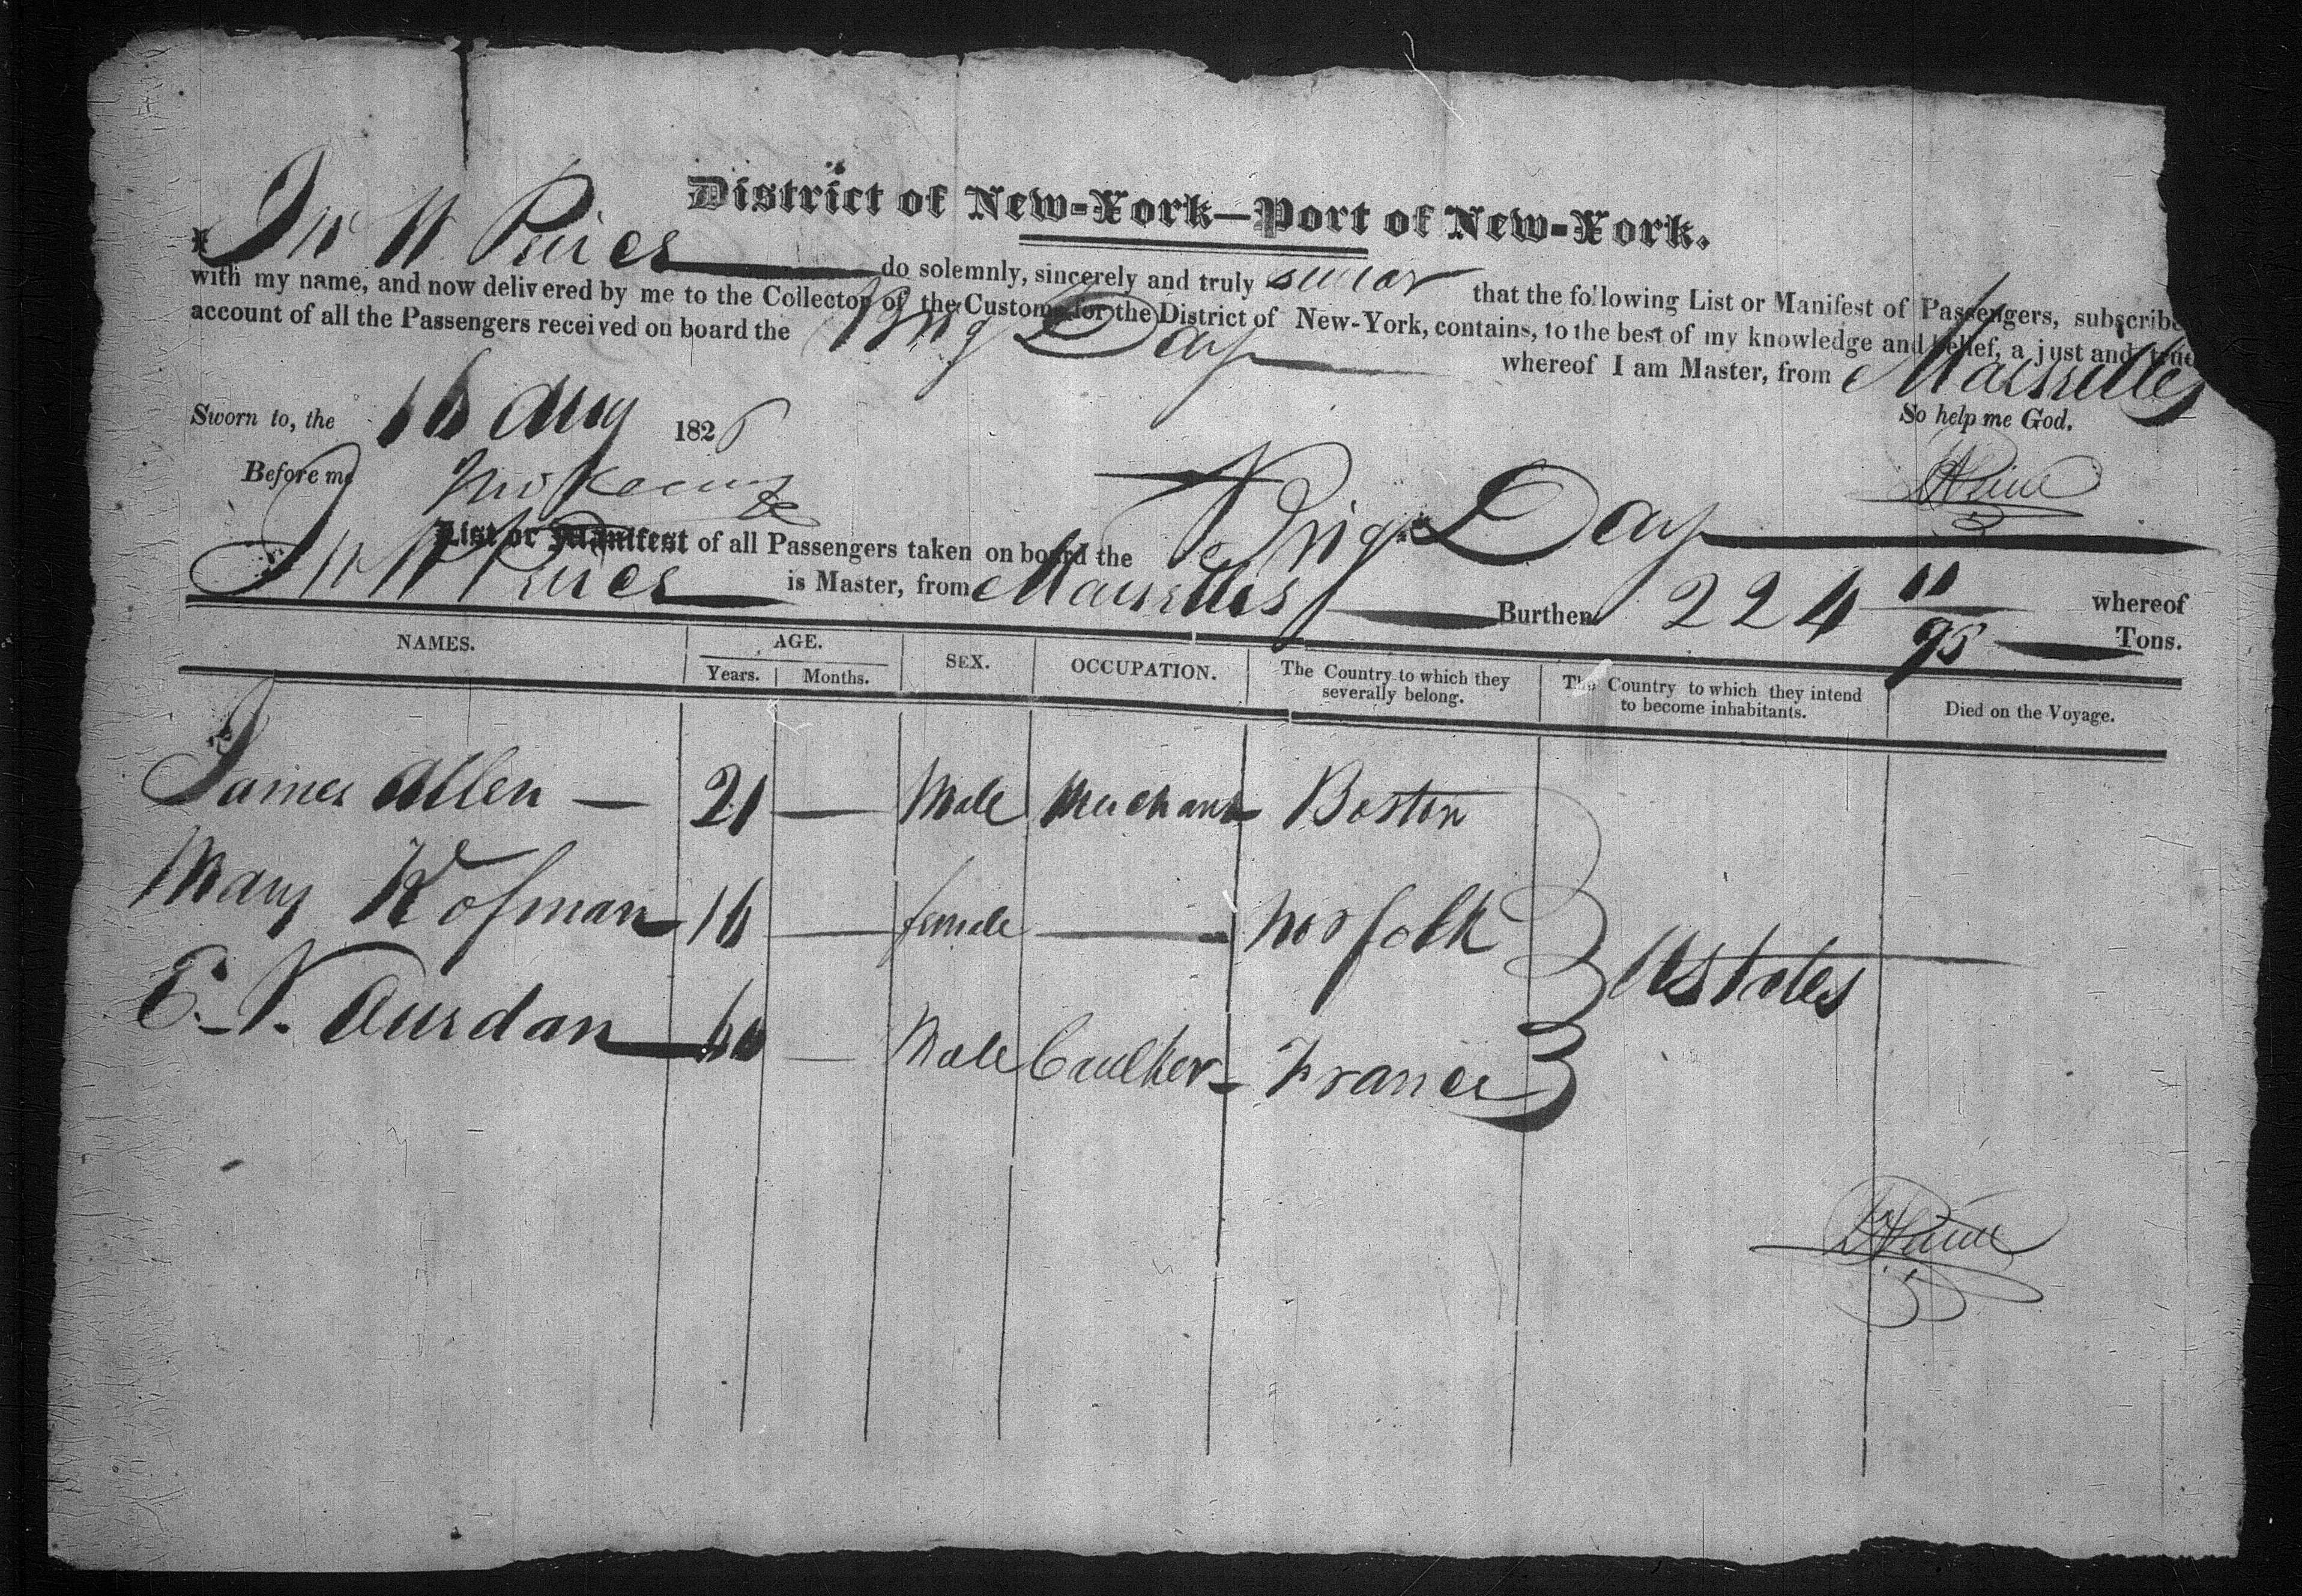 District of New-York—Port of New-York.
I, do solemnly, sincerely and truly swear that the following List or Manifest of Passengers, subscribe
with my name, and now delivered by me to the Collector of the Customs for the District of New-York, contains, to the best of my knowledge and belief, a just and true
account of all the Passengers received on board the Brig Day whereof I am Master, from Marseilles
So help me God.
Sworn to, the 16 Aug 1826
Before me
List or Manifest of all Passengers taken on board the Brig Day whereof
is Master, from Marseilles Burthen 224 11/95 Tons.
NAMES. AGE. SEX. OCCUPATION. The Country to which they severally belong. The Country to which they intend to become inhabitants. Died on the Voyage.
Years. Months.
James Allen — 21 — Male Merchant Boston
Mary Hofman 16 — female — Norfolk
UStates
E. N. Aurdan — 60 — Male Caulker France